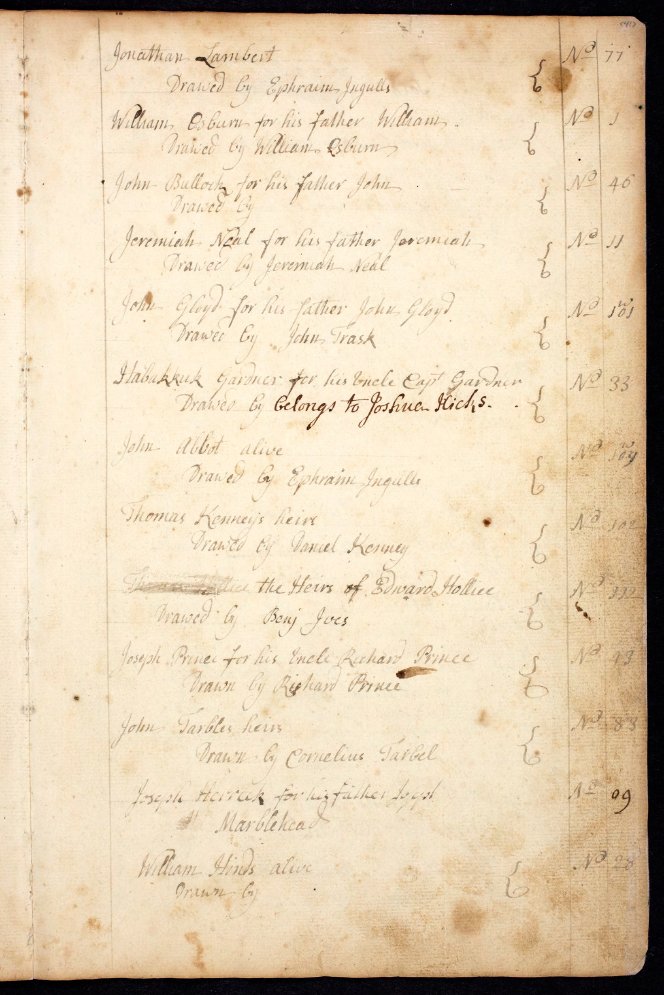 Jonathan Lambert No 77
Drawed by Ephraim Ingulls
William Osburn for his father William No 1
Drawed by William Osburn
John Bullock for his father John No 46
Drawed by
Jeremiah Neal for his father Jeremiah No 11
Drawed by Jeremiah Neal
John Gloyd for his father John Gloyd No 101
Drawed by John Trask
Habukkuk Gardner for his Uncle Capt Gardner No 33
Drawed by belongs to Joshua Hicks.
John Abbot alive No 109
Drawed by Ephraim Ingulls
Thomas Kenney's heirs No 102
Drawed by Daniel Kenney
the Heirs of Edward Hollice No 112
Drawed by Benj Ives
Joseph Prince for his Uncle Richard Prince No
Drawn by Richard Prince
John Tarbles heirs No 83
Drawn by Cornelius Tarbel
Joseph Herrick for his father No 09
Marblehead
William Hinds alive No 28
Drawn by